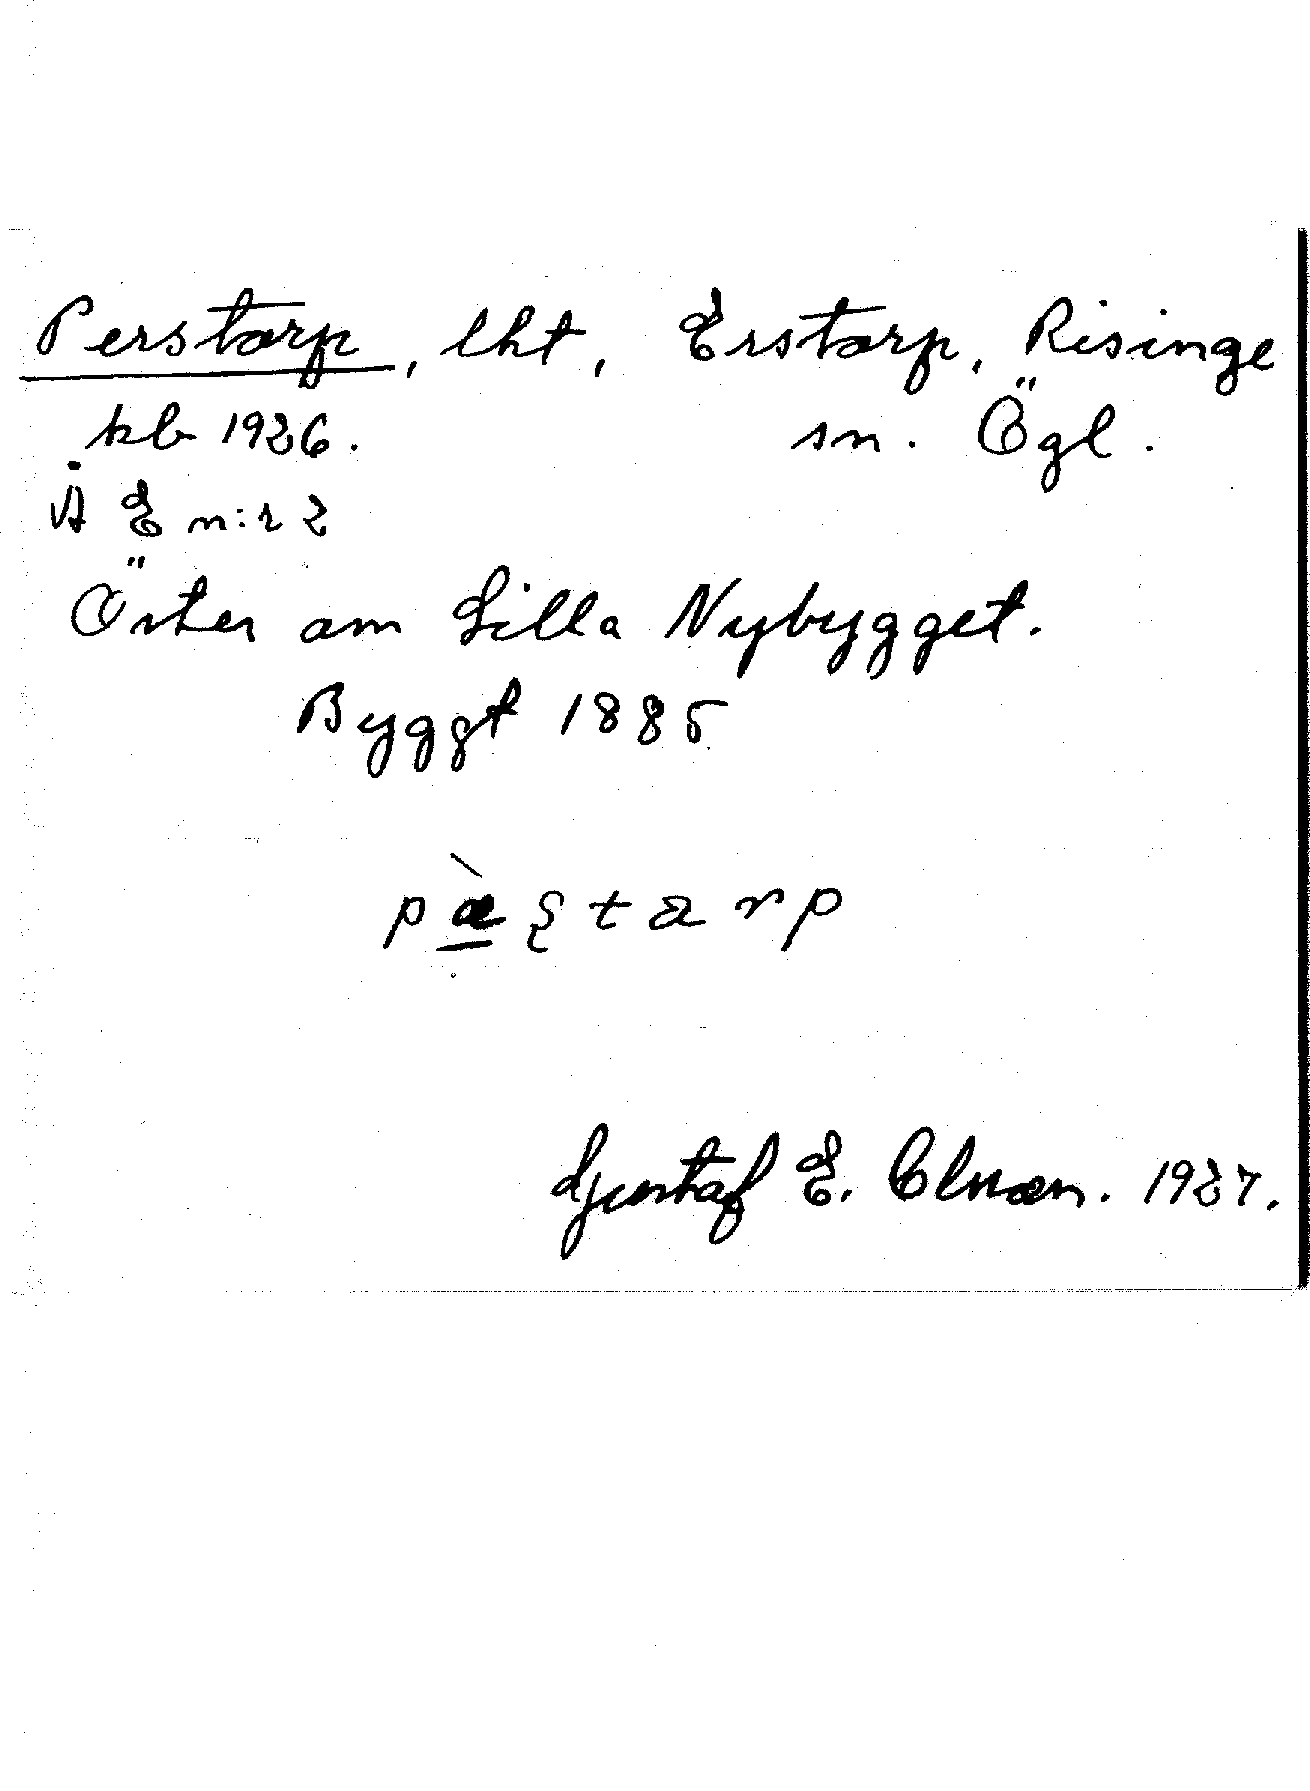 Perstorp, lht, Erstorp, Risinge
kb 1926. sn. Ögl.
Å E n:r 2
Öster om Lilla Nybygget.
Byggt 1885
pæ̀ştarp
Gustaf E. 1927.